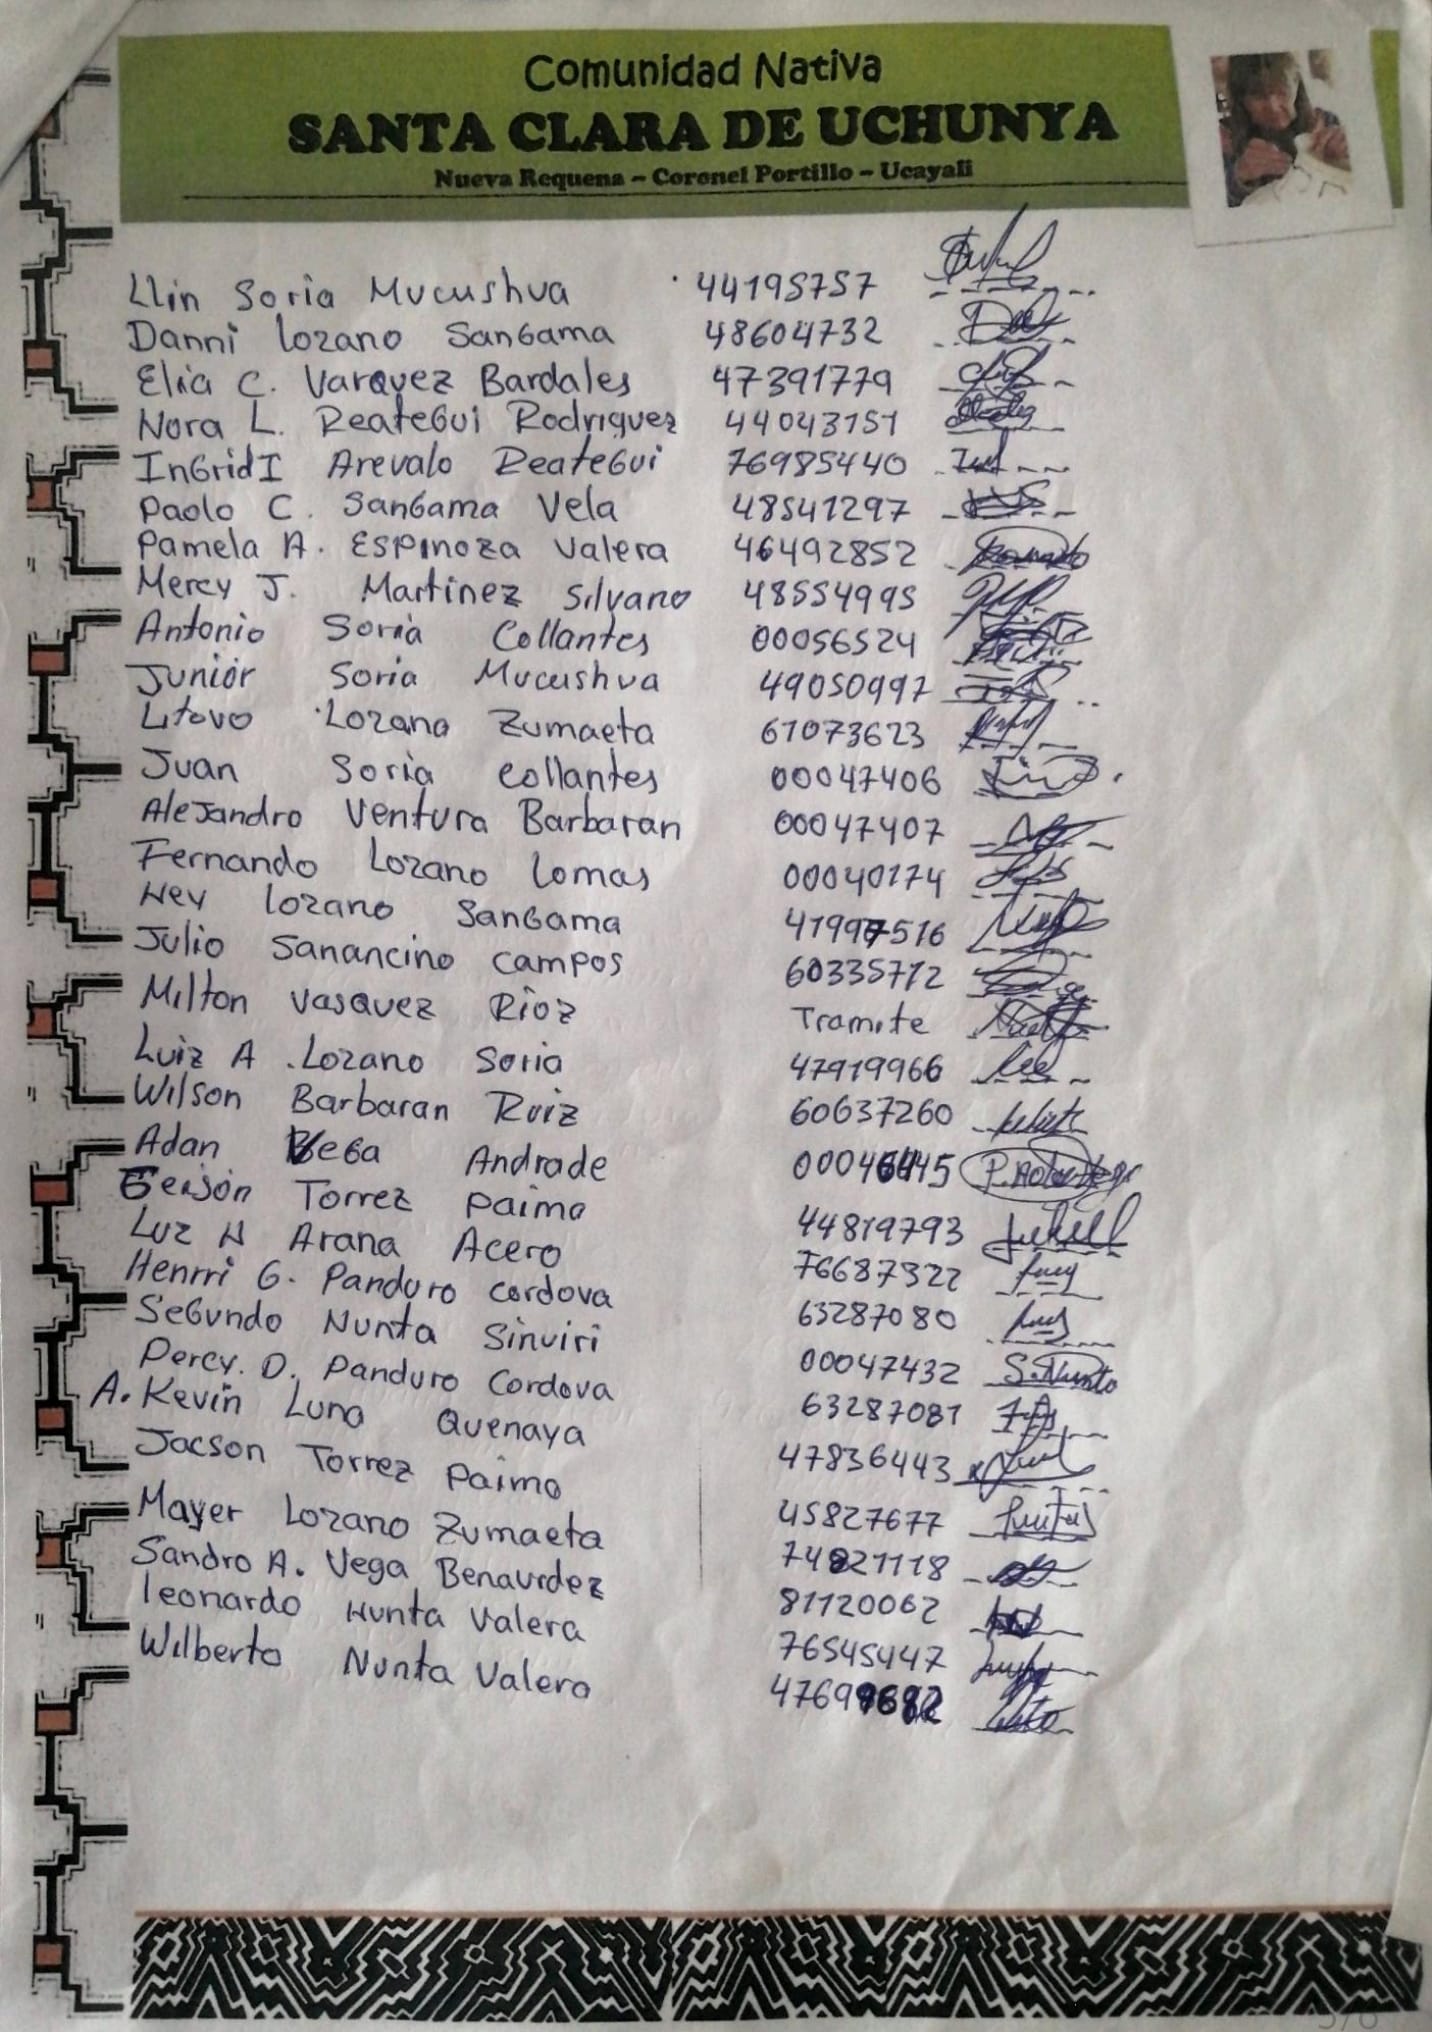 Comunidad Nativa
SANTA CLARA DE UCHUNYA
Nueva Requena – Coronel Portillo – Ucayali
Llin Soria Mucushua 44195757
Danni Lozano Sangama 48604732
Elia C. Varquez Bardales 47391779
Nora L. Reategui Rodriguez 44043151
IngridI Arevalo Reategui 76985440
Paolo C. Sangama Vela 48541297
Pamela A. Espinoza Valera 46492852
Mercy J. Martinez Silvano 48554995
Antonio Soria Collantes 00056524
Junior Soria Mucushua 49050997
Litovo Lozano Zumaeta 61073623
Juan Soria Collantes 00047406
Alejandro Ventura Barbaran 00047407
Fernando Lozano Lomas 00040174
Ney Lozano Sangama 41997516
Julio Sanancino Campos 60335712
Milton Vasquez Rioz Tramite
Luiz A. Lozano Soria 47919966
Wilson Barbaran Ruiz 60637260
Adan Vega Andrade
Gerson Torrez Paima 44819793
Luz N Arana Acero 76687322
Henrri G. Panduro Cordova 63287080
Segundo Nunta Sinuiri 00047432 S. Nunta
Percy. D. Panduro Cordova 63287081
A. Kevin Luna Quenaya 47836443
Jacson Torrez Paima 45827677
Mayer Lozano Zumaeta 74821118
Sandro A. Vega Benaurdez 81120062
Leonardo Nunta Valera 76545447
Wilberto Nunta Valera
5/6